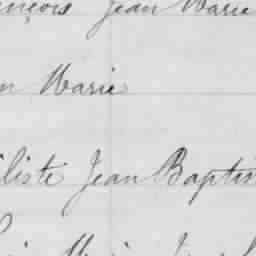 ançois Jean Marie
n Marie
liste Jean Baptis